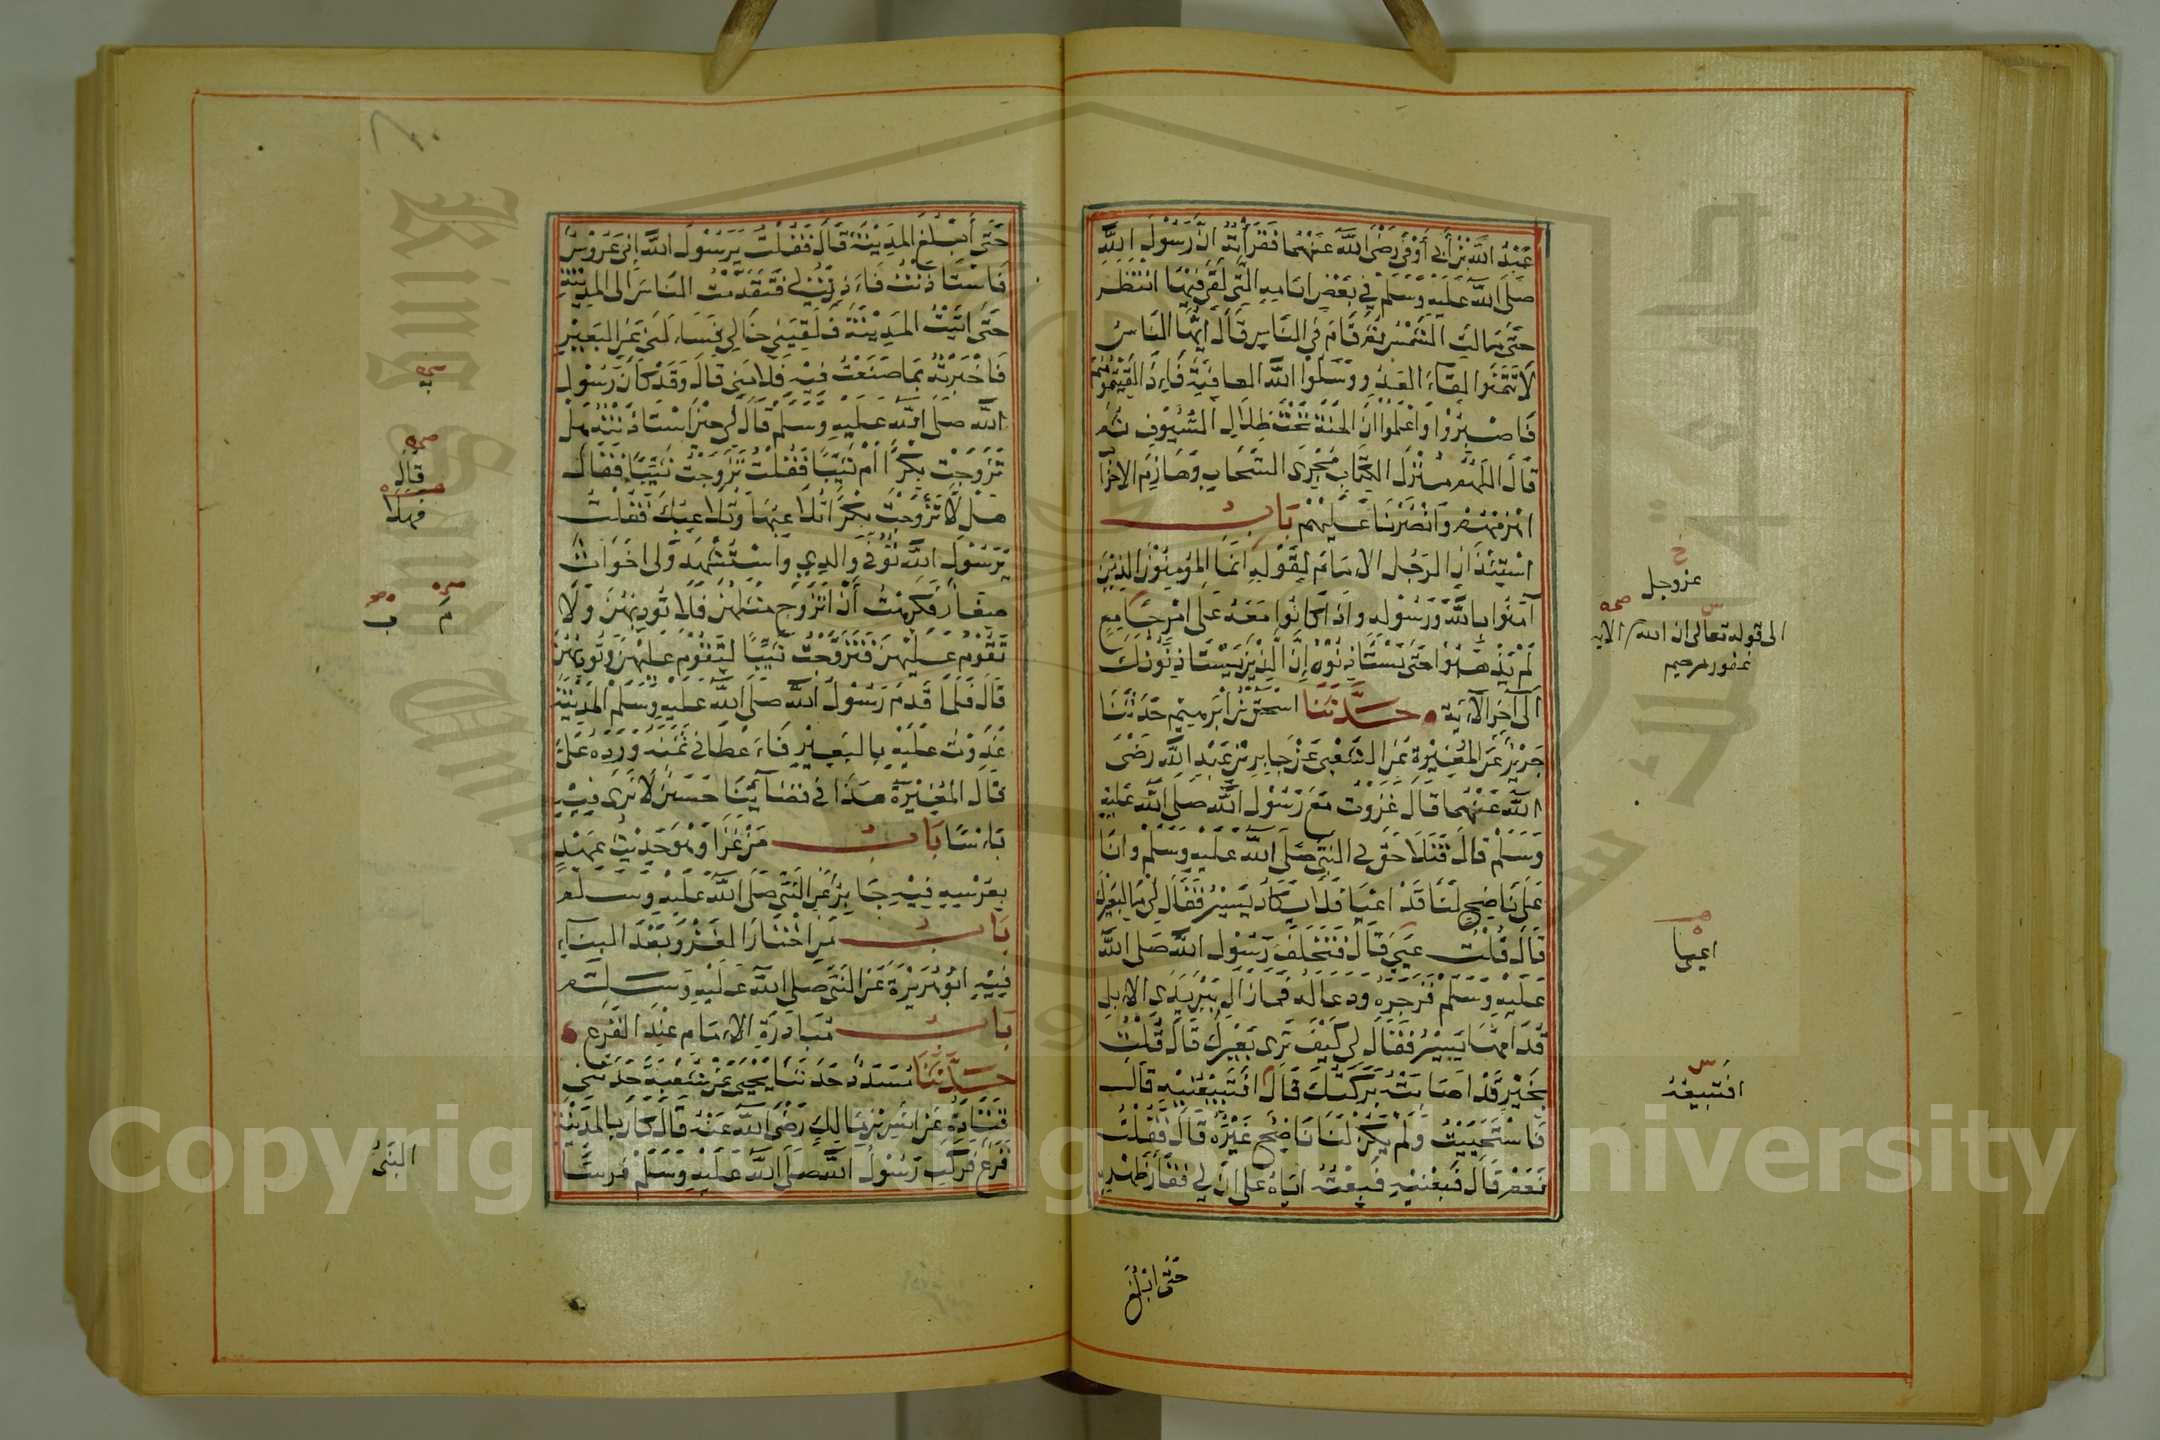 عَبْدُ اللَّهِ بْنُ أَبِي أَوْفَى رَضِيَ اللَّهُ عَنْهُمَا فَقَرَأْتُهُ انَّ رَسُولَ اللَّهِ
صَلَّى اللَّهُ عَلَيْهِ وَسَلَّمَ فِي بَعْضِ ايَّامِهِ الَّتِي لَقِيَ فِيهَا انْتَظَرَ
حَتَّى مَالَتِ الشَّمْسُ ثُمَّ قَامَ فِي النَّاسِ قَالَ أَيُّهَا النَّاسُ
لَا تَتَمَنَّوا لِقَاءَ العَدُوِّ وَسَلُوا اللَّهَ العَافِيَةَ فَإِذَا لَقِيتُمُوهُمْ
فَاصْبِرُوا وَاعْلَمُوا أَنَّ الجَنَّةَ تَحْتَ ظِلَالِ السُّيُوفِ ثُمَّ
قَالَ اللَّهُمَّ مُنْزِلَ الكِتَابِ مُجْرِيَ السَّحَابِ وَهَازِمَ الأَحْزَابِ
اهْزِمْهُمْ وَانْصُرْنَا عَلَيْهِمْ بَابُ
اسْتِئْذَانِ الرَّجُلِ الإِمَامَ لِقَوْلِهِ إِنَّمَا المُؤْمِنُونَ الَّذِينَ
آمَنُوا بِاللَّهِ وَرَسُولِهِ وَإِذَا كَانُوا مَعَهُ عَلَى امْرٍ جَامِعٍ
لَمْ يَذْهَبُوا حَتَّى يَسْتَأْذِنُوهُ إِنَّ الَّذِينَ يَسْتَأْذِنُونَكَ
الَى آخِرِ الآيَةِ حَدَّثَنَا اسْحَقُ بْنُ ابْرَهِيمَ حَدَّثَنَا
جَرِيرٌ عَنِ المُغِيرَةِ عَنِ الشَّعْبِيِّ عَنْ جَابِرِ بْنِ عَبْدِ اللَّهِ رَضِيَ
اللَّهُ عَنْهُمَا قَالَ غَزَوْتُ مَعَ رَسُولِ اللَّهِ صَلَّى اللَّهُ عَلَيْهِ
وَسَلَّمَ قَالَ فَتَلَاحَقَ بِيَ النَّبِيُّ صَلَّى اللَّهُ عَلَيْهِ وَسَلَّمَ وَانَا
عَلَى نَاضِحٍ لَنَا قَدْ اعْيَا فَلَا يَكَادُ يَسِيرُ فَقَالَ لِي مَا لِبَعِيرِكَ
قَالَ قُلْتُ عَيِيَ قَالَ فَتَخَلَّفَ رَسُولُ اللَّهِ صَلَّى اللَّهُ
عَلَيْهِ وَسَلَّمَ فَزَجَرَهُ وَدَعَا لَهُ فَمَا زَالَ بَيْنَ يَدَيِ الإِبِلِ
قُدَّامَهَا يَسِيرُ فَقَالَ لِي كَيْفَ تَرَى بَعِيرَكَ قَالَ قُلْتُ
بِخَيْرٍ قَدْ اصَابَتْهُ بَرَكَتُكَ قَالَ افَتَبِيعُنِيهِ قَالَ
فَاسْتَحْيَيْتُ وَلَمْ يَكُنْ لَنَا نَاضِحٌ غَيْرُهُ قَالَ فَقُلْتُ
نَعَمْ قَالَ فَبِعْنِيهِ فَبِعْتُهُ ايَّاهُ عَلَى انَّ لِي فَقَارَ ظَهْرِهِ
حَتَّى ابْلُغَ
خ
عز وجل
صح
الى قوله تعالى ان الله الاية
غفور رحيم
اعيى
س
افتبيعه
حَتَّى أَبْلُغَ المَدِينَةَ قَالَ فَقُلْتُ يَرَسُولَ اللَّهِ إِنِّي عَرُوسٌ
فَاسْتَأْذَنْتُهُ فَأَذِنَ لِي فَتَقَدَّمْتُ النَّاسَ الَى المَدِينَةِ
حَتَّى اتَيْتُ المَدِينَةَ فَلَقِيَنِي خَالِي فَسَأَلَنِي عَنِ البَعِيرِ
فَاخْبَرْتُهُ بِمَا صَنَعْتُ فِيهِ فَلَامَنِي قَالَ وَقَدْ كَانَ رَسُولُ
اللَّهِ صَلَّى اللَّهُ عَلَيْهِ وَسَلَّمَ قَالَ لِي حِينَ اسْتَأْذَنْتُهُ هَلْ
تَزَوَّجْتَ بِكْرًا أَمْ ثَيِّبًا فَقُلْتُ تَزَوَّجْتُ ثَيِّبًا فَقَالَ
هَلْ لَا تَزَوَّجْتَ بِكْرًا تُلَاعِبُهَا وَتُلَاعِبُكَ فَقُلْتُ
يَرَسُولَ اللَّهِ تُوُفِّيَ وَالِدِي وَاسْتُشْهِدَ وَلِي اخَوَاتٌ
صِغَارٌ فَكَرِهْتُ أَنْ اتَزَوَّجَ مِثْلَهُنَّ فَلَا تُؤَدِّبُهُنَّ وَلَا
تَقُومُ عَلَيْهِنَّ فَتَزَوَّجْتُ ثَيِّبًا لِتَقُومَ عَلَيْهِنَّ وَتُؤَدِّبَهُنَّ
قَالَ فَلَمَّا قَدِمَ رَسُولُ اللَّهِ صَلَّى اللَّهُ عَلَيْهِ وَسَلَّمَ المَدِينَةَ
غَدَوْتُ عَلَيْهِ بِالبَعِيرِ فَأَعْطَانِي ثَمَنَهُ وَرَدَّهُ عَلَيَّ
قَالَ المُغِيرَةُ هَذَا فِي قَضَائِنَا حَسَنٌ لَا نَرَى فِيهِ
بَأْسًا بَابُ مَنْ غَزَا وَهُوَ حَدِيثُ عَهْدٍ
بِعُرْسِهِ فِيهِ جَابِرٌ عَنِ النَّبِيِّ صَلَّى اللَّهُ عَلَيْهِ وَسَلَّمَ
بَابُ مَنِ اخْتَارَ الغَزْوَ بَعْدَ البِنَاءِ
فِيهِ ابُو هُرَيْرَةَ عَنِ النَّبِيِّ صَلَّى اللَّهُ عَلَيْهِ وَسَلَّمَ
بَابُ مُبَادَرَةِ الإِمَامِ عِنْدَ الفَزَعِ
حَدَّثَنَا مُسَدَّدٌ حَدَّثَنَا يَحْيَى عَنْ شُعْبَةَ حَدَّثَنِي
قَتَادَةُ عَنْ انَسِ بْنِ مَالِكٍ رَضِيَ اللَّهُ عَنْهُ قَالَ كَانَ بِالمَدِينَةِ
فَزَعٌ فَرَكِبَ رَسُولُ اللَّهِ صَلَّى اللَّهُ عَلَيْهِ وَسَلَّمَ فَرَسًا
صح
قال
فهلا
النَّبِيُّ
King Saud University
Copyright © King Saud University